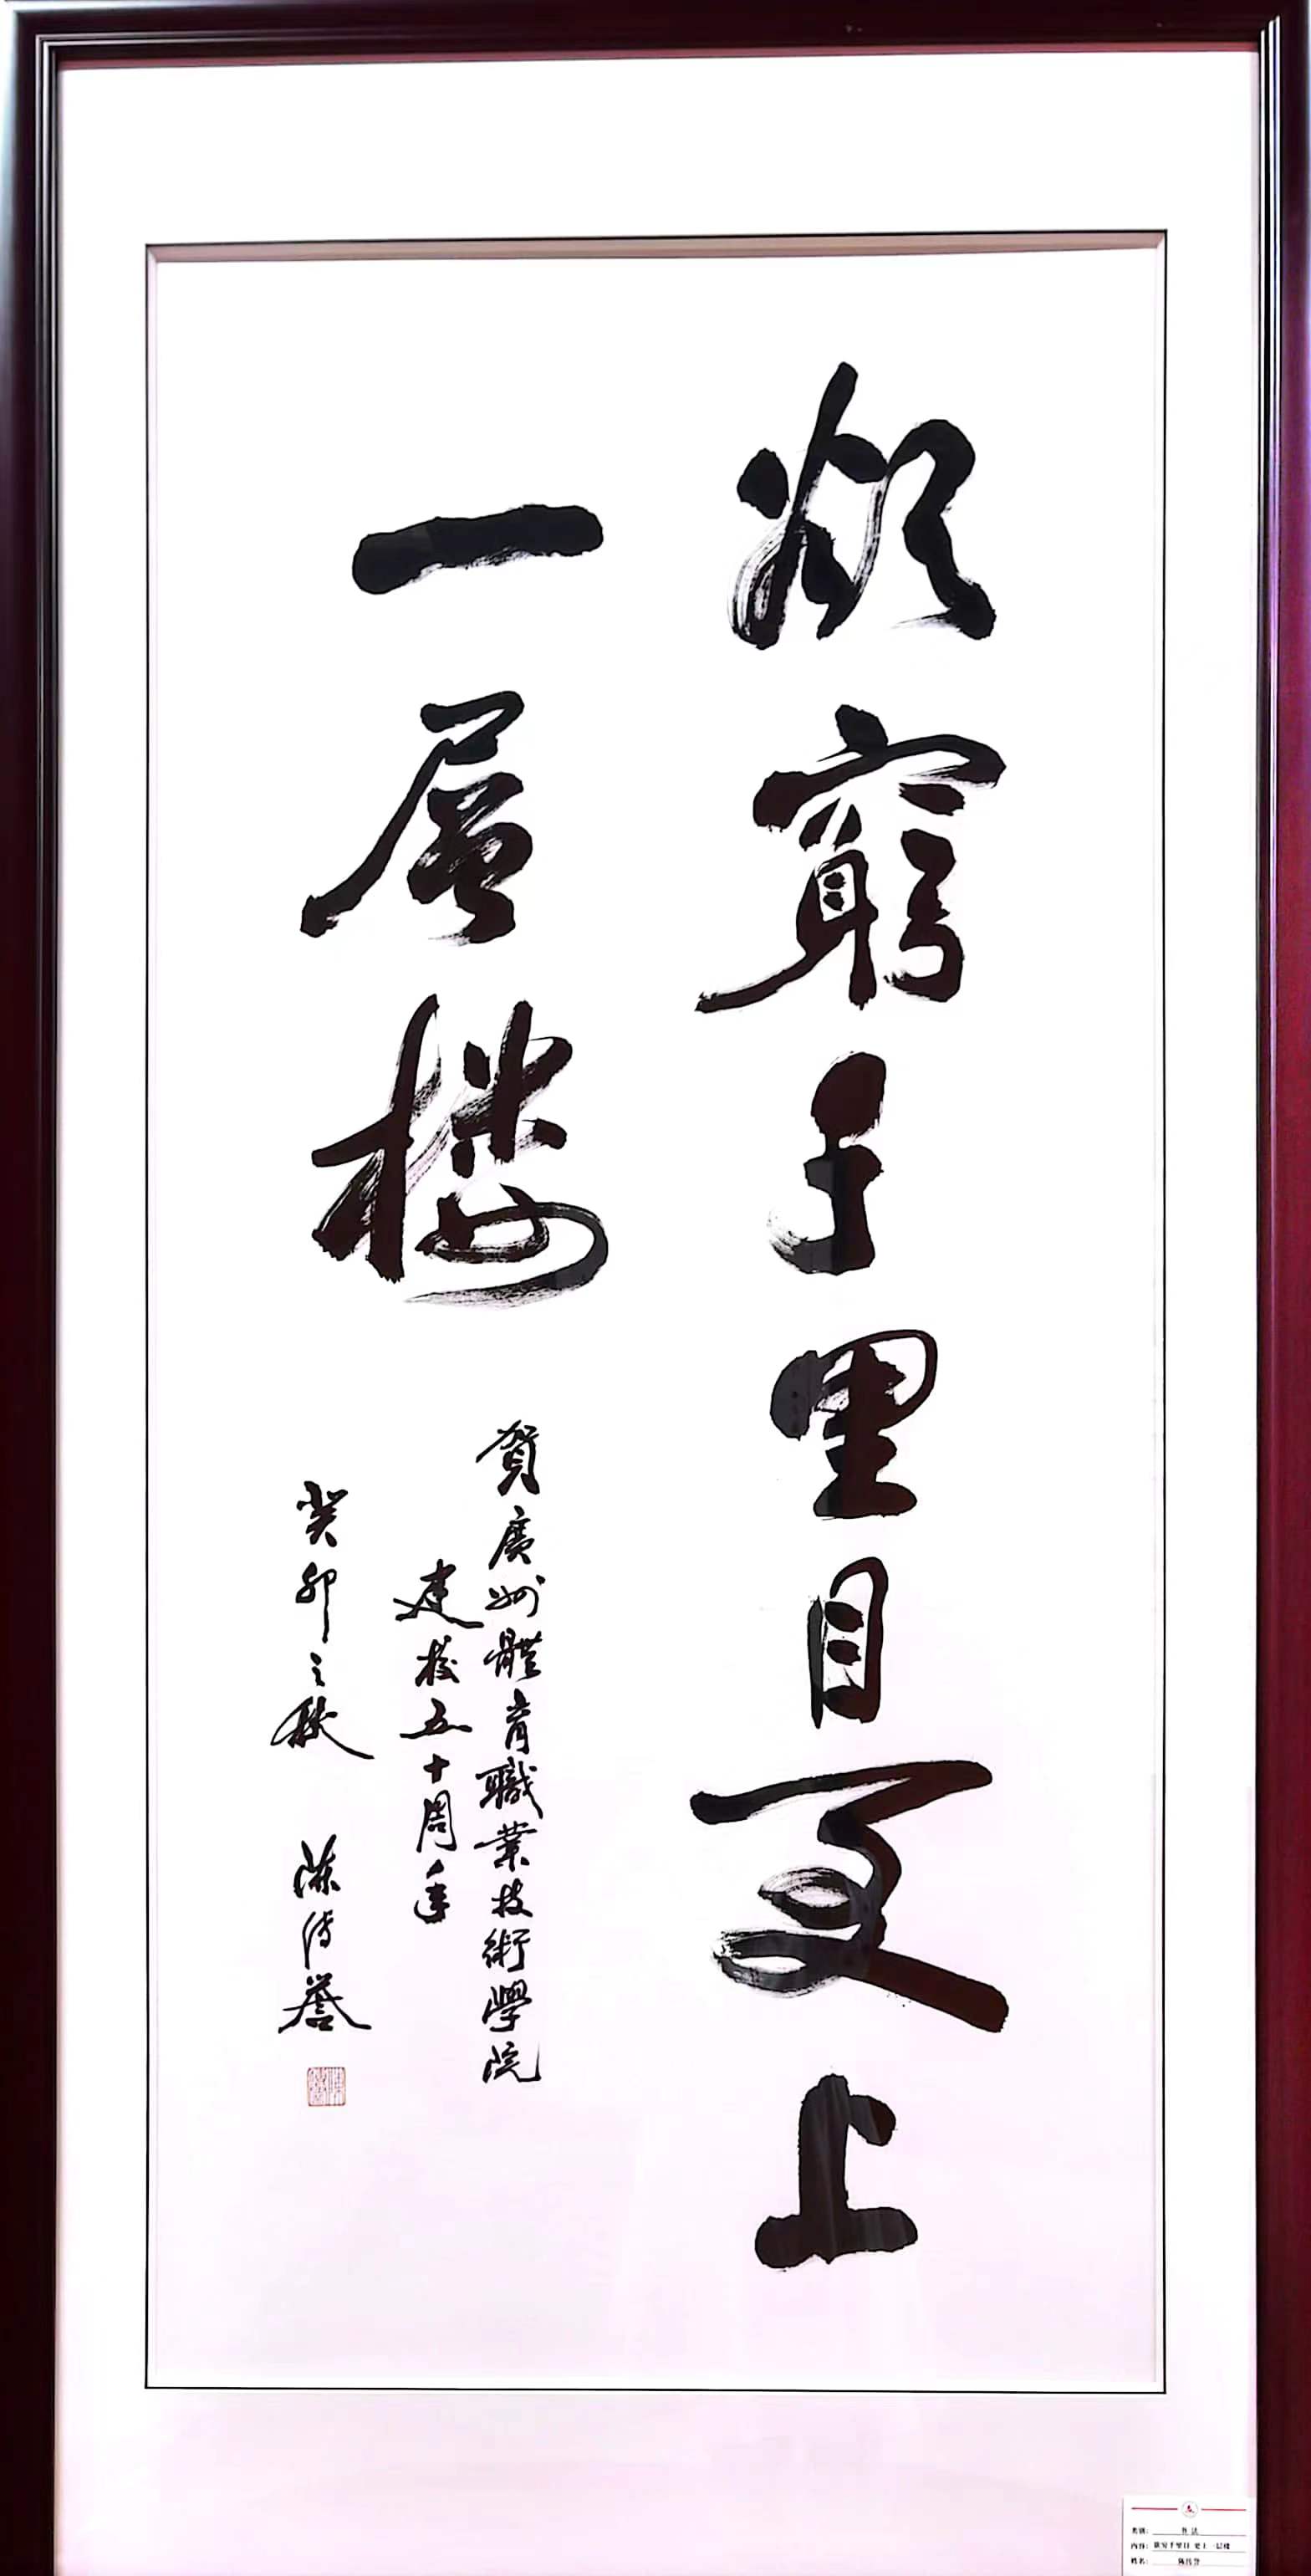 欲窮千里目更上
一層樓
賀廣州體育職業技術學院
建校五十周年
癸卯之秋 陳傳譽
类别: 书法
内容: 欲穷千里目 更上一层楼
姓名: 陈传誉